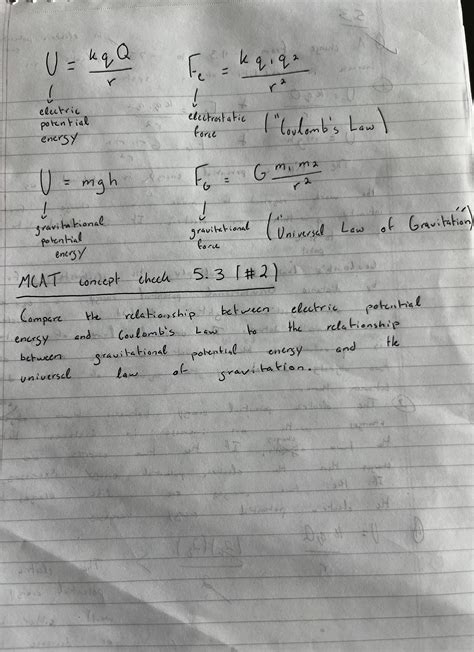 U = kqQ/r    Fe = k q1 q2/r²
↓ electric potential energy    ↓ electrostatic force    ("Coulomb's Law)
U = mgh    FG = G m1 m2/r²
↓ gravitational potential energy    ↓ gravitational force    ("Universal Law of Gravitation")
MCAT concept check 5.3 (#2)
Compare the relationship between electric potential
energy and Coulomb's Law to the relationship
between gravitational potential energy and the
universal law of gravitation.